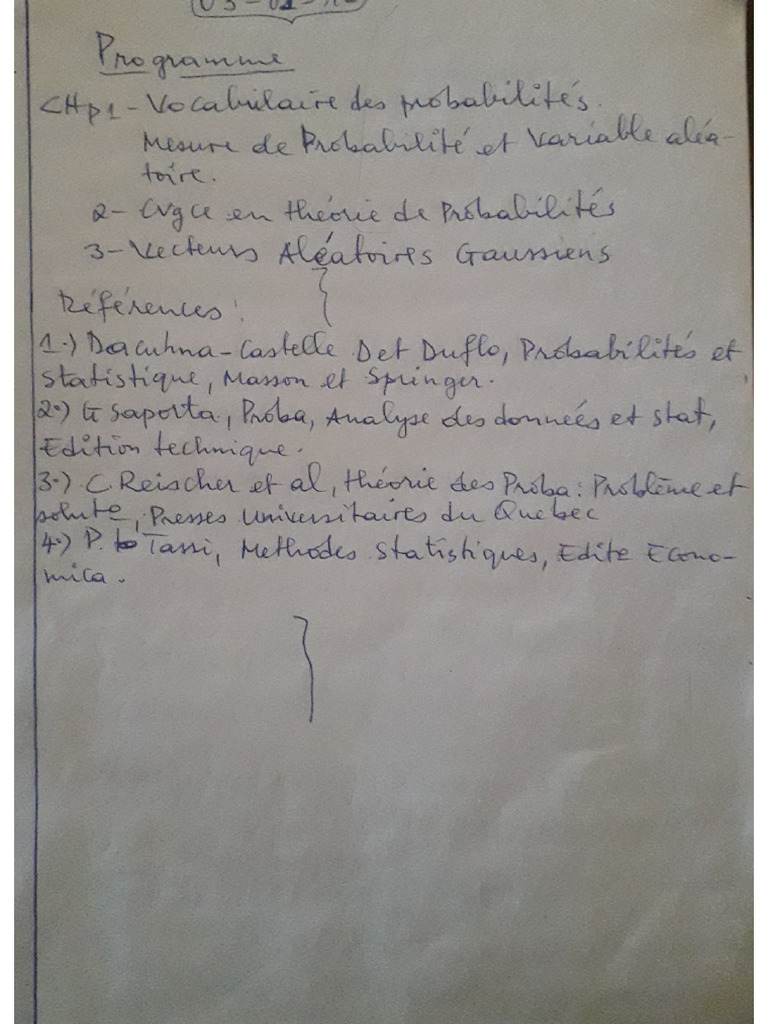 Programme
CHp1 - Vocabulaire des probabilités.
Mesure de Probabilité et Variable aléa-
toire.
2- Cvgce en théorie de Probabilités
3- Vecteurs Aléatoires Gaussiens
Références :
1.) Dacuhna-Castelle D et Duflo, Probabilités et
statistique, Masson et Springer.
2.) G Saporta, Proba, Analyse des données et stat,
Edition technique.
3.) C. Reischer et al, théorie des Proba : Problème et
solute, Presses Universitaires du Quebec
4.) P. Tassi, Methodes Statistiques, Edite Econo-
mica.